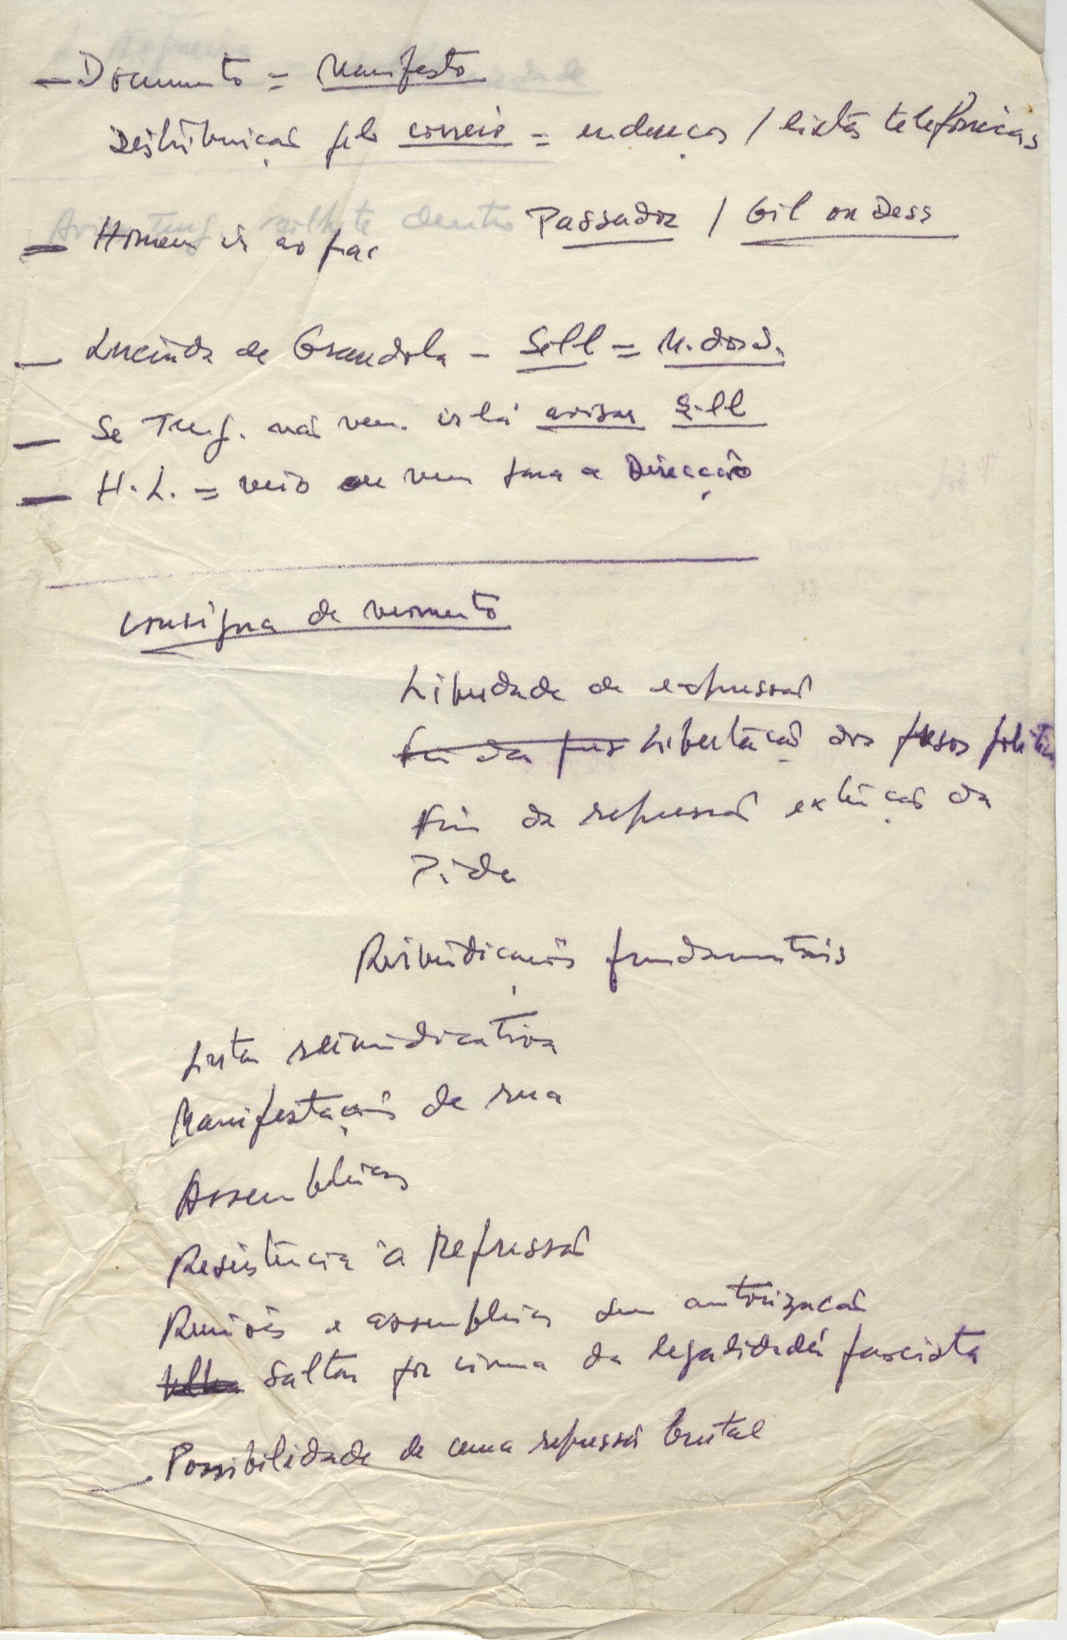 — Documento = Manifesto
Distribuição pelo correio = endereços / listas telefónicas
Passador / Gil ou Dess
— Homem ir ao
— Lucinda de Grandola – Sell =
— Se Teng. não vem. ir lá avisar Sell
— H. L. = veio ou vem para a Direcção
consigna de momento
Liberdade de expressão
Fim da pres Libertação dos presos politi
Fim da repressão extinção da
Pide
Reivindicações fundamentais
Luta reivindicativa
Manifestações de rua
Assembleias
Resistência à Repressão
Reuniões e assembleias sem autorização
Saltar por cima da legalidade fascista
— Possibilidade de uma repressão brutal